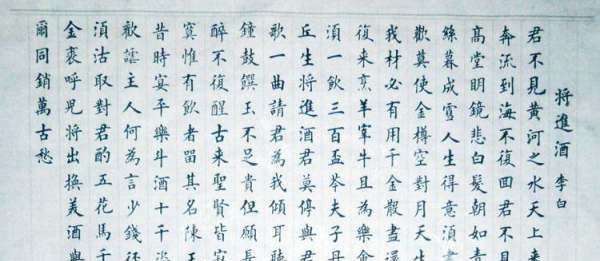 将進酒 李白
君不見黄河之水天上来
奔流到海不復回君不見
高堂明鏡悲白髮朝如青
絲暮成雪人生得意須盡
歡莫使金樽空對月天生
我材必有用千金散盡還
復来烹羊宰牛且為樂會
須一飲三百盃岑夫子丹
丘生将進酒君莫停與君
歌一曲請君為我傾耳聽
鐘鼓饌玉不足貴但願長
醉不復醒古来聖賢皆寂
寞惟有飲者留其名陳王
昔時宴平樂斗酒十千恣
歡謔主人何為言少錢徑
須沽取對君酌五花馬千
金裘呼兒将出換美酒與
爾同銷萬古愁